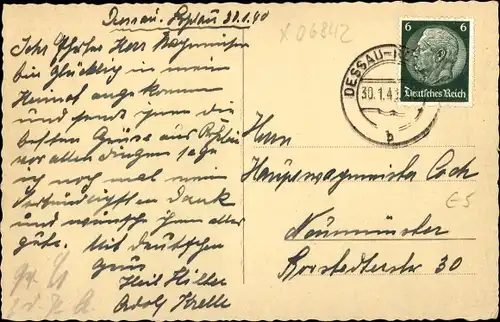 Dessau-Roßlau 30.1.40
X 06842
Sehr geehrter Herr Wagenmeister
bin Glücklich in mein
Heimat angekommen
und sende ihnen die
besten Grüße aus Roßlau
vor allen dingen sage
ich noch mal mein
Dank
und wünsch ihnen alles
gute. Mit deutschen
Grus
Heil Hitler
Adolf Krelle
6 6
Deutsches Reich
DESSAU
30.1.4
b
Herrn
Hauptwagenmeister Coch
Neumünster
30